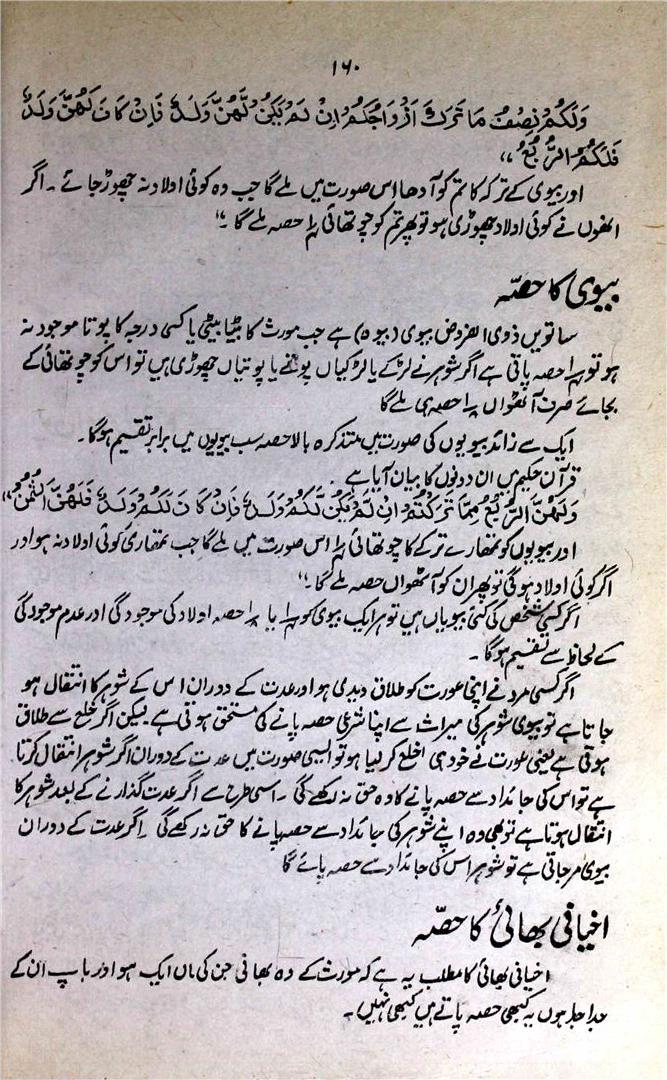 ۱۶۰
وَلَكُمْ نِصْفُ مَا تَرَكَ اَزْوَاجُكُمْ اِنْ لَمْ يَكُنْ لَّهُنَّ وَلَدٌ فَاِنْ كَانَ لَهُنَّ وَلَدٌ
فَلَكُمُ الرُّبُعُ ،،
اور بیوی کے ترکہ کا تم کو آدھا اس صورت میں ملے گا جب وہ کوئی اولاد نہ چھوڑ جائے ۔ اگر
انھوں نے کوئی اولاد چھوڑی ہو تو پھر تم کو چوتھائی ¼ حصہ ملے گا ۔"
بیوی کا حصّہ
ساتویں ذوی الفروض بیوی (بیوہ) ہے جب مورث کا بیٹا بیٹی یا کسی درجہ کا پوتا موجود نہ
ہو تو ¼ حصہ پاتی ہے اگر شوہر نے لڑکے یا لڑکیاں پوتے یا پوتیاں چھوڑی ہیں تو اس کو چوتھائی کے
بجائے صرف آٹھواں ⅛ حصہ ہی ملے گا
ایک سے زائد بیویوں کی صورت میں متذکرہ بالا حصہ سب بیویوں میں برابر تقسیم ہوگا ۔
قرآن حکیم میں ان دونوں کا بیان آیا ہے ۔
وَلَهُنَّ الرُّبُعُ مِمَّا تَرَكْتُمْ اِنْ لَّمْ يَكُنْ لَّكُمْ وَلَدٌ فَاِنْ كَانَ لَكُمْ وَلَدٌ فَلَهُنَّ الثُّمُنُ ،،
اور بیویوں کو تمھارے ترکے کا چوتھائی ¼ اس صورت میں ملے گا جب تمھاری کوئی اولاد نہ ہو اور
اگر کوئی اولاد ہوگی تو پھر ان کو آٹھواں حصہ ملے گا ۔"
اگر کسی شخص کی کئی بیویاں ہیں تو ہر ایک بیوی کو ¼ یا ⅛ حصہ اولاد کی موجودگی اور عدم موجودگی
کے لحاظ سے تقسیم ہوگا ۔
اگر کسی مرد نے اپنی عورت کو طلاق دیدی ہو اور عدت کے دوران اس کے شوہر کا انتقال ہو
جاتا ہے تو بیوی شوہر کی میراث سے اپنا شرعی حصہ پانے کی مستحق ہوتی ہے لیکن اگر خلع سے طلاق
ہوتی ہے یعنی عورت نے خود ہی خلع کر لیا ہو تو ایسی صورت میں عدت کے دوران اگر شوہر انتقال کرتا
ہے تو اس کی جائداد سے حصہ پانے کا وہ حق نہ رکھے گی ۔ اسی طرح سے اگر عدت گذارنے کے بعد شوہر کا
انتقال ہوتا ہے تو بھی وہ اپنے شوہر کی جائداد سے حصہ پانے کا حق نہ رکھے گی ۔ اگر عدت کے دوران
بیوی مر جاتی ہے تو شوہر اس کی جائداد سے حصہ پائے گا
اخیافی بھائی کا حصّہ
اخیافی بھائی کا مطلب یہ ہے کہ مورث کے وہ بھائی جن کی ماں ایک ہو اور باپ ان کے
جدا جدا ہوں یہ کبھی حصہ پاتے ہیں کبھی نہیں ۔